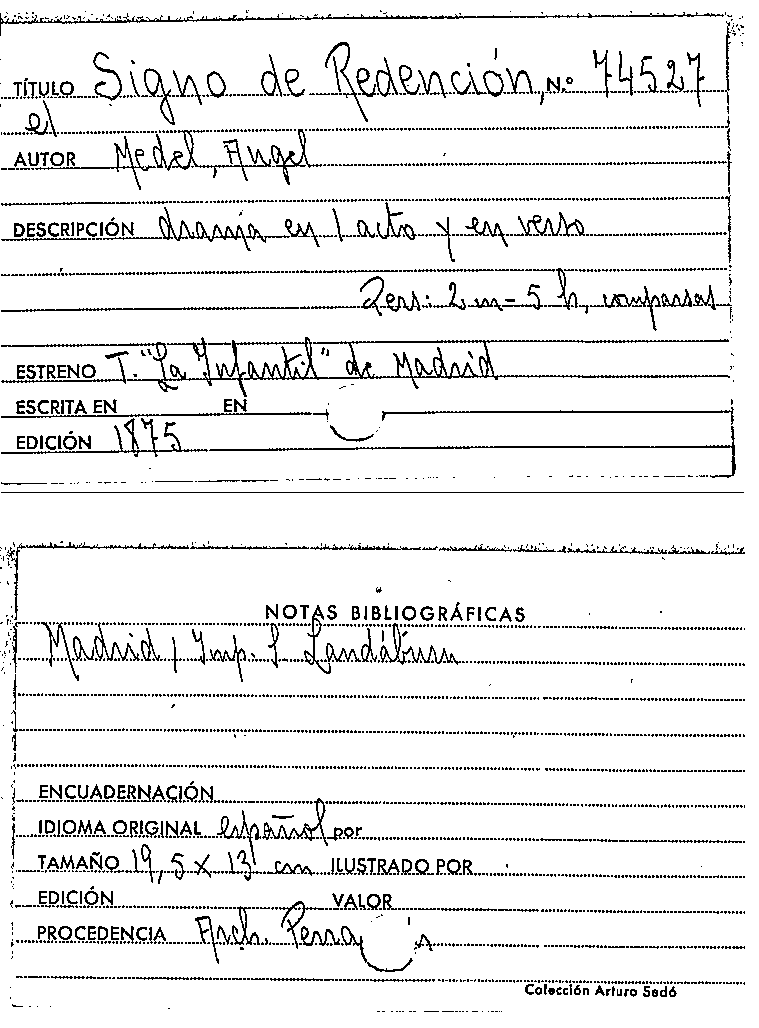 TÍTULO Signo de Redención, N.º 74527
el
AUTOR Medel, Angel
DESCRIPCIÓN drama en 1 acto y en verso
Pers: 2 m - 5 h, comparsas
ESTRENO T. "La Infantil" de Madrid
ESCRITA EN EN
EDICIÓN 1875
NOTAS BIBLIOGRÁFICAS
Madrid / Imp. S Landáburu
ENCUADERNACIÓN
IDIOMA ORIGINAL español por
TAMAÑO 19,5 x 13 cm ILUSTRADO POR
EDICIÓN VALOR
PROCEDENCIA Arch.
Colección Arturo Sedó